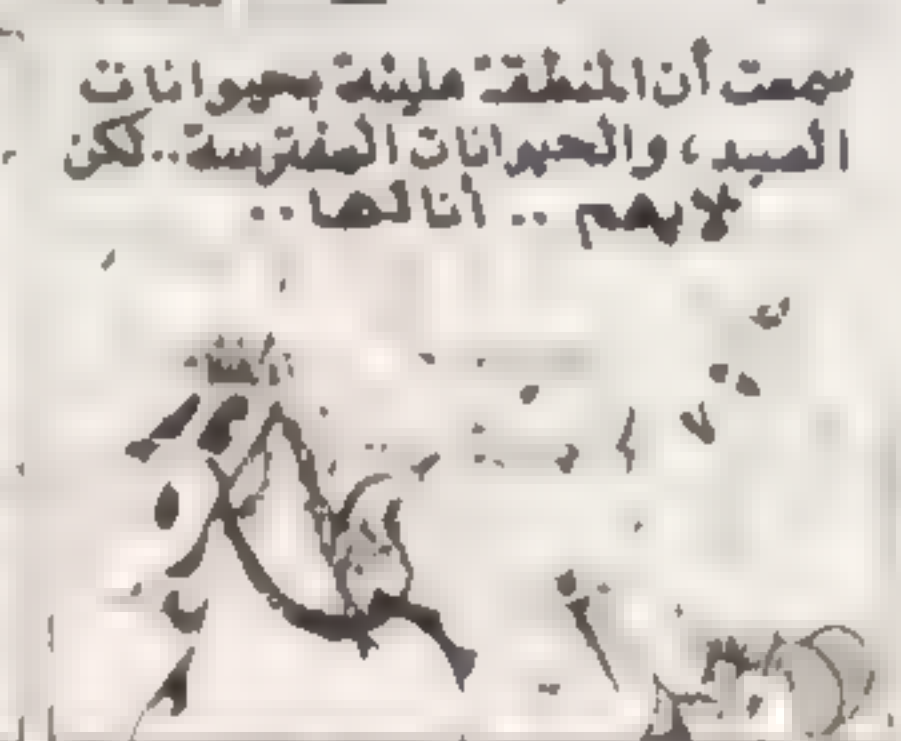 سمعت أن المنطقة مليئة بحيوانات
الصيد، والحيوانات المفترسة..لكن
لا يهم .. أنا لها ..